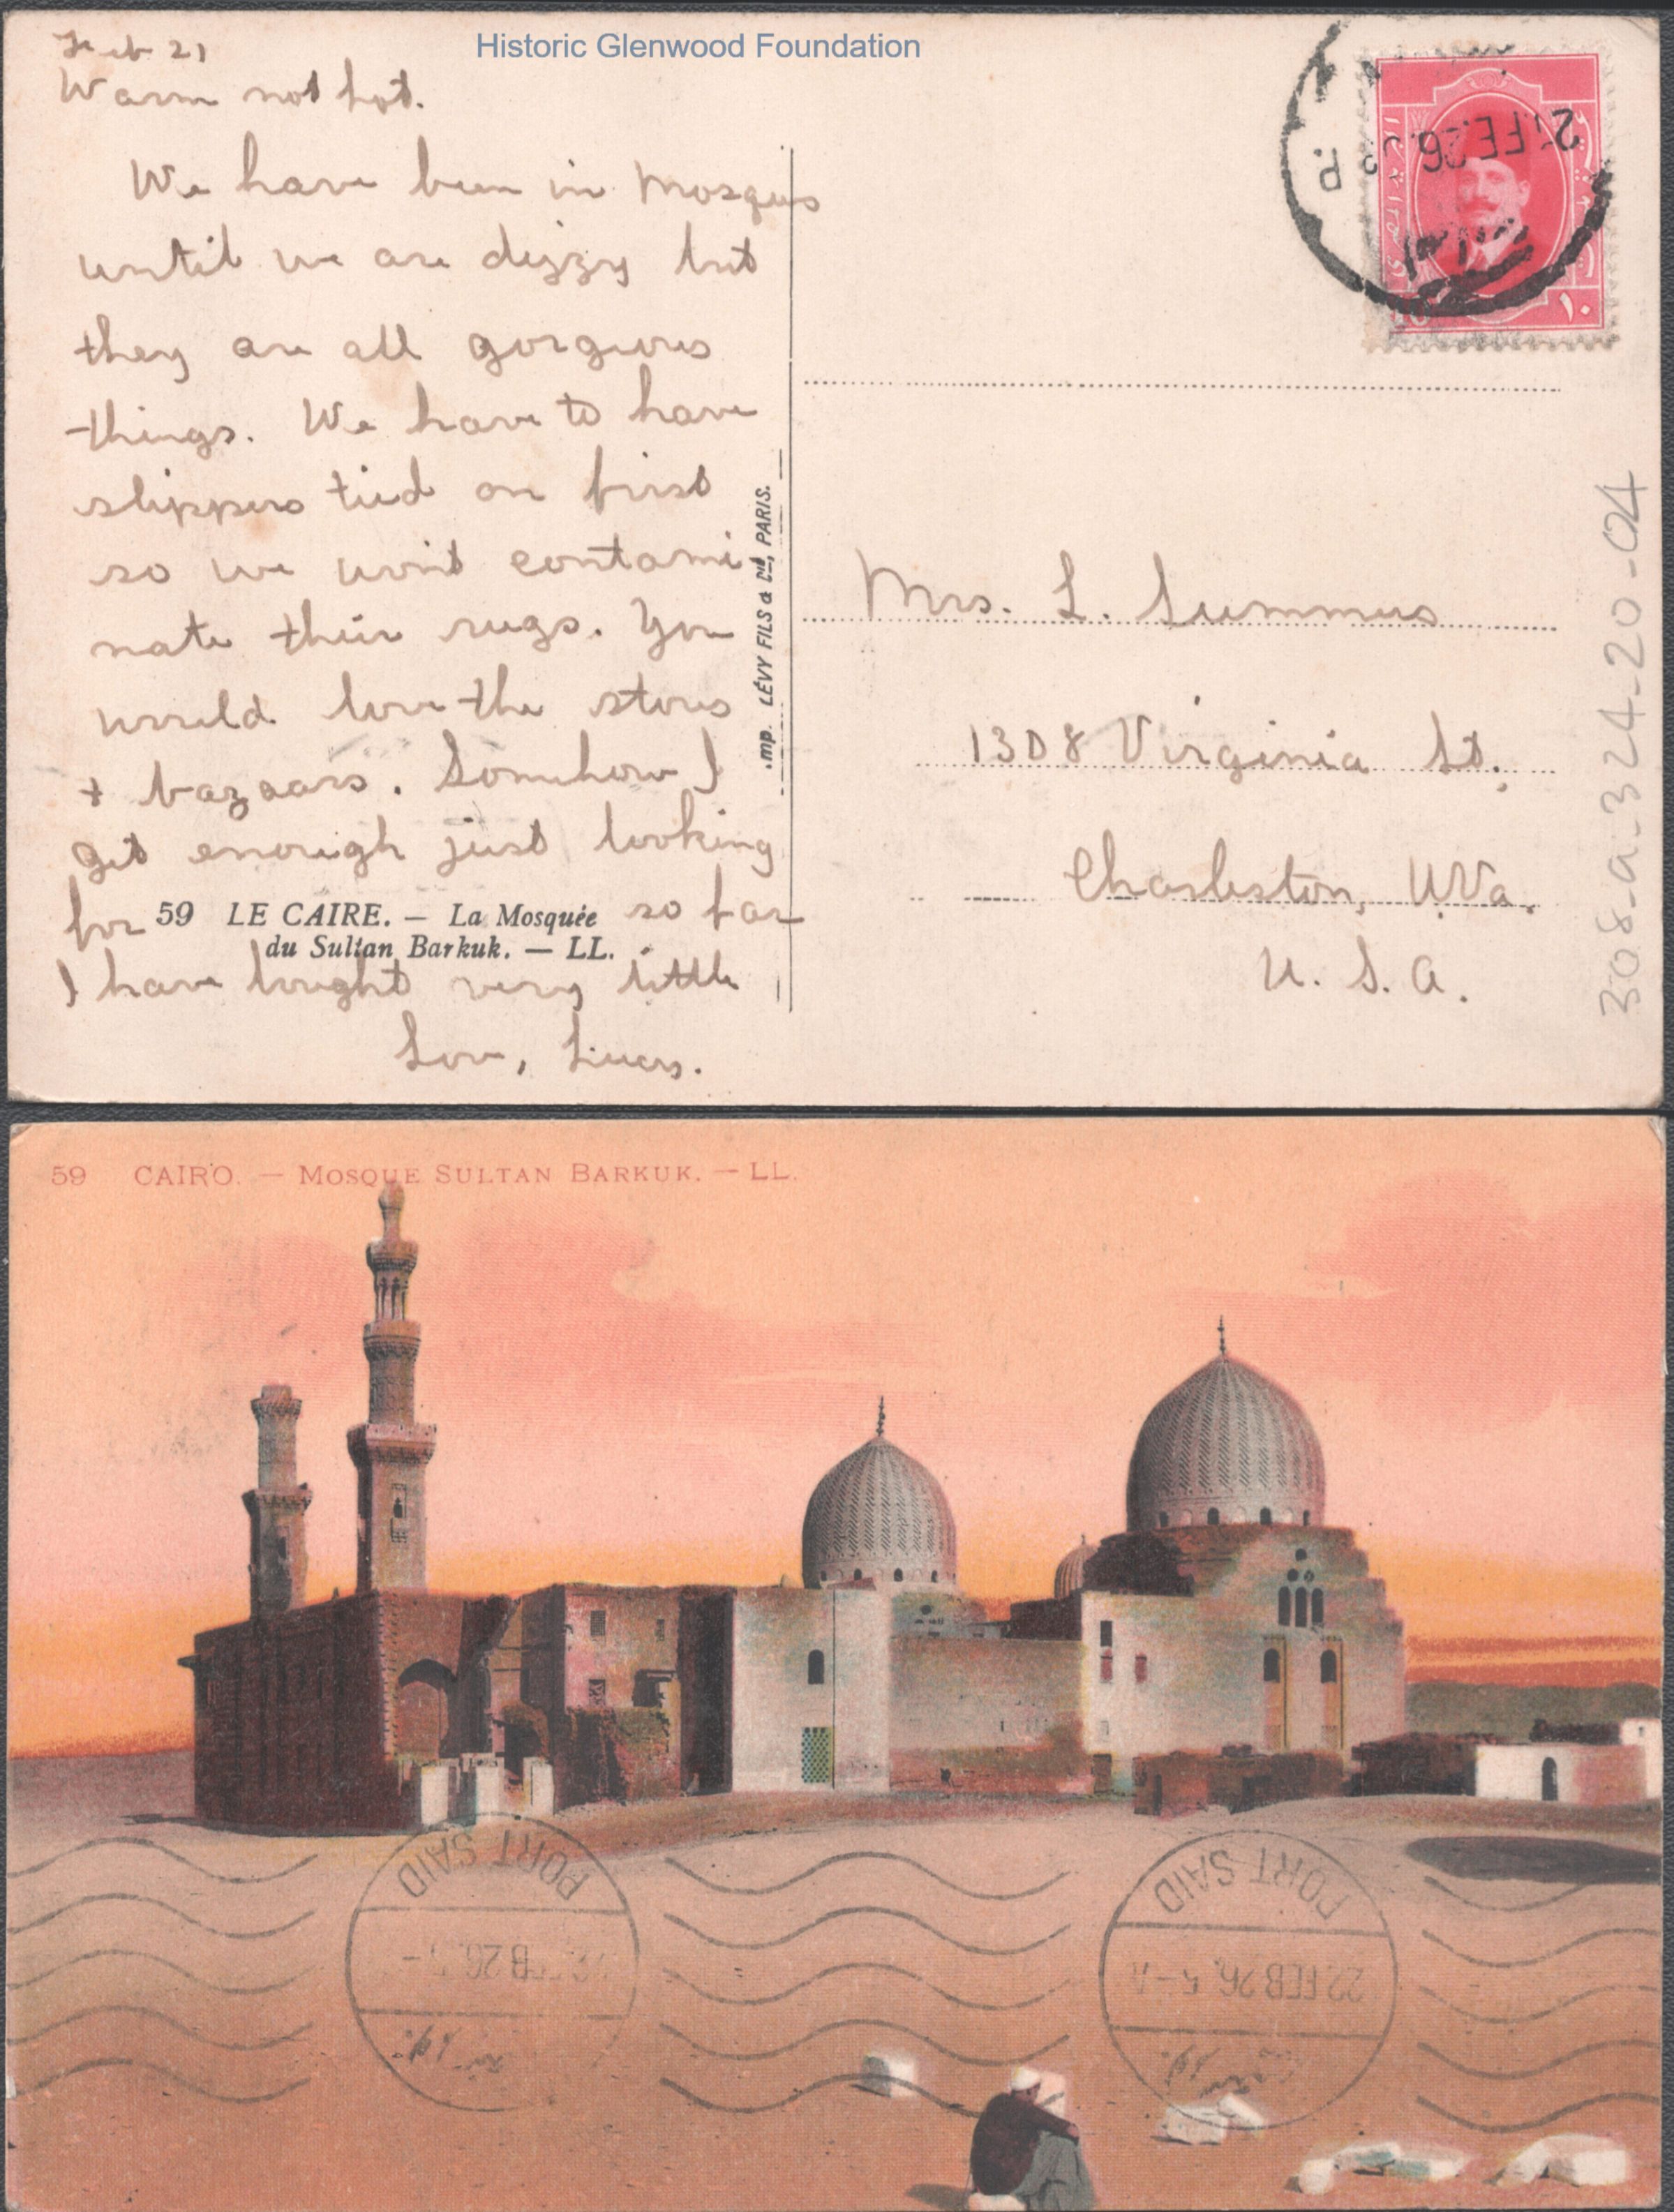 Historic Glenwood Foundation
Feb 21
Warm not hot.
We have been in Mosques
until we are dizzy but
they are all gorgeous
things. We have to have
slippers tied on first
so we wont contami
nate their rugs. You
would love the stores
+ bazaars. Somehow I
get enough just looking
for so far
I have bought very little
Love, Lucy.
59 LE CAIRE. — La Mosquée
du Sultan Barkuk. — LL.
Imp. LÉVY FILS & Cie, PARIS.
FE.26
١٠
Mrs. L. Summers
1308 Virginia St.,
Charleston, W.Va.
U. S. A.
308-a-324-20-04
59 CAIRO. — MOSQUE SULTAN BARKUK. — LL.
PORT SAID
FEB 26. 5-
PORT SAID
22 FEB 26. 5-A